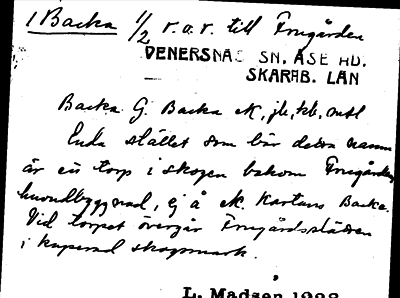 1 Backa 1/2 r.a.r. till Frugården
VÄNERSNÄS SN. ÅSE HD.
SKARAB. LÄN
Backa G. Backa ek, jb, kb, mtl
Enda stället som bär detta namn
är ett torp i skogen bakom Frugårdens
huvudbyggnad, ej å ek. Kartans Backa.
Vid torpet övergår Frugårdsslätten
i kuperad skogsmark.
L. Madsen 1928